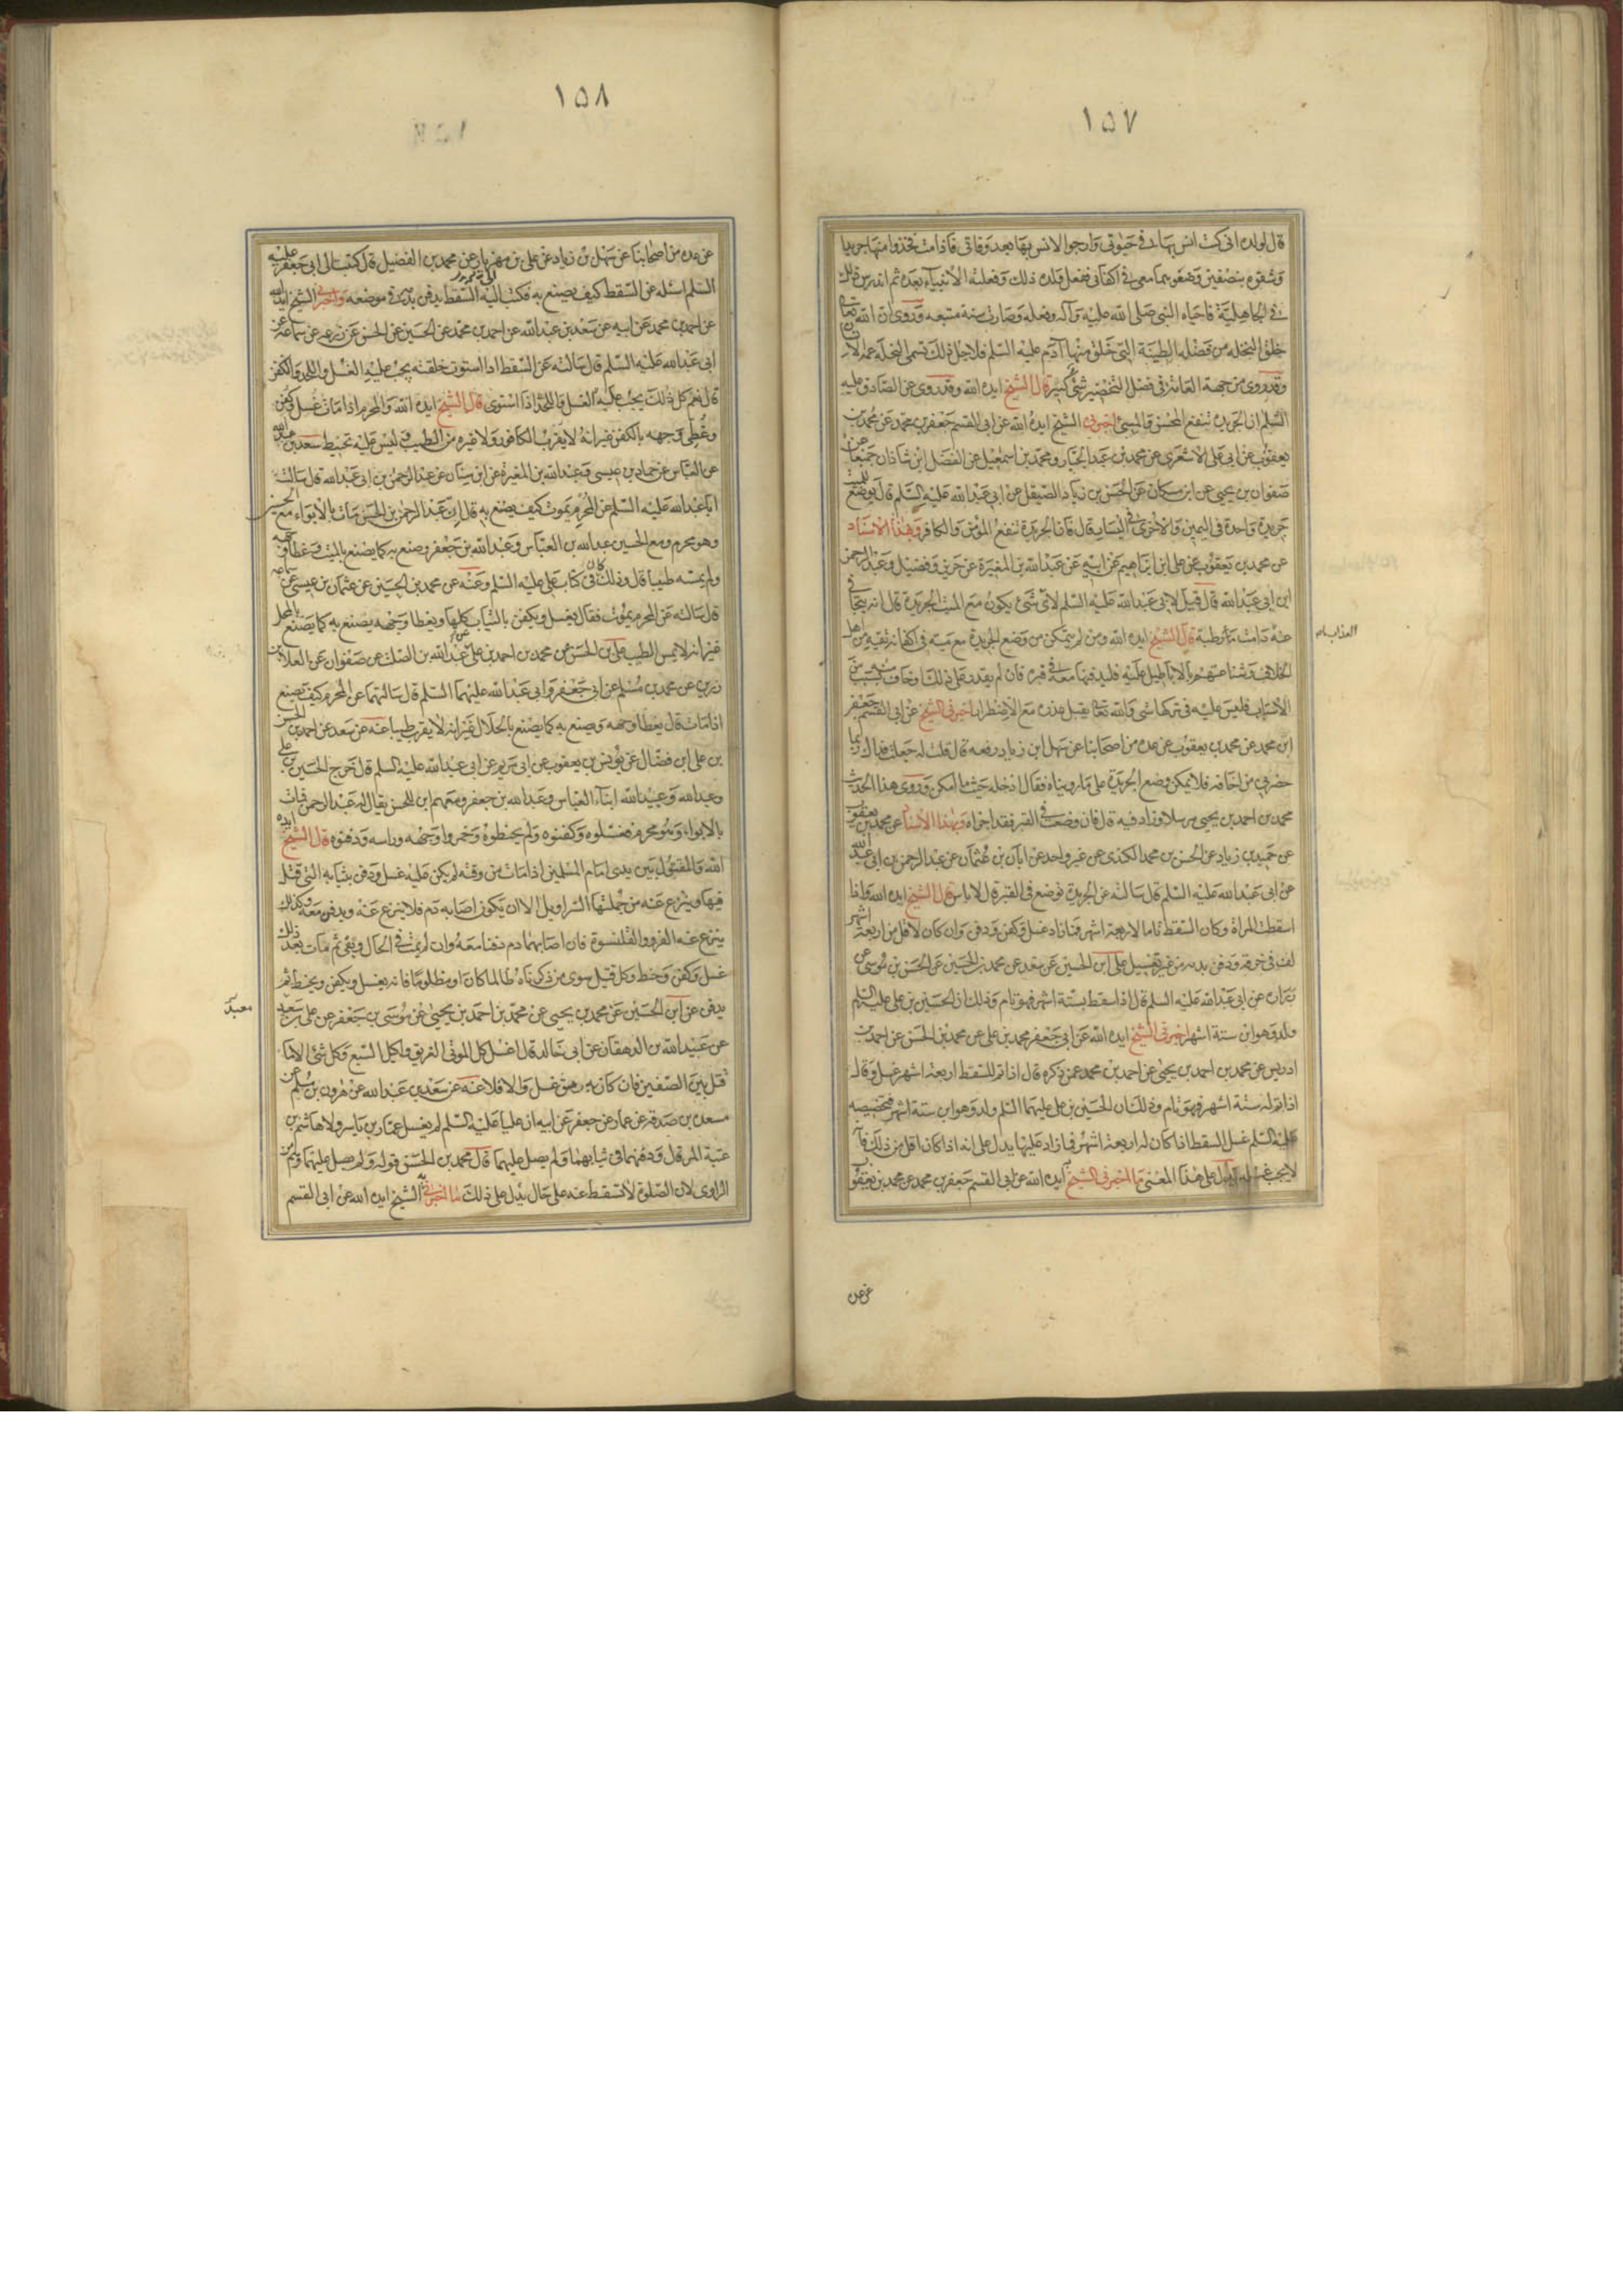 ١٥٧
قال لولده انى كنت انس بها فى حيوتى وارجوا الانس بها بعد وفاتى فاذا مت فخذوا منها جريدا
وشقوه بنصفين وضعوهما معى فى اكفانى ففعل ولده ذلك وفعلته الانبياء بعده ثم اندرس ذلك
فى الجاهلية فاحياه النبى صلى الله عليه وآله وفعله وصارت سنة متبعه وروى ان الله تعالى
خلق النخله من فضله الطينة التى خلق منها آدم عليه السلم فلاجل ذلك تسمى النخلة عمة الانسان
وقد روى من جهة العامة فى فضل التخضير شئ كثير قال الشيخ ايده الله وقد روى عن الصادق عليه
السلم ان الجريدة تنفع المحسن والمسئ اخبرنى الشيخ ايده الله عن ابى القسم جعفر بن محمد عن محمد بن
يعقوب عن ابى على الاشعرى عن محمد بن عبد الجبار ومحمد بن اسمعيل عن الفضل ابن شاذان جميعا عن
صفوان بن يحيى عن ابن مسكان عن الحسن بن زياد الصيقل عن ابى عبد الله عليه السلم قال يوضع للميت
جريدة واحدة فى اليمين والاخرى فى اليسار قال قال الجريدة تنفع المؤمن والكافر وبهذا الاسناد
عن محمد بن يعقوب عن على ابن ابراهيم عن ابيه عن عبد الله بن المغيرة عن حريز وفضيل وعبد الرحمن
ابن ابى عبد الله قال قيل لابى عبد الله عليه السلم لاى شئ يكون مع الميت الجريدة قال انه يتجافى
عنه مادامت رطبة قال الشيخ ايده الله ومن لم يتمكن من وضع الجريدة مع ميته فى اكفانه تقية من اهل
العذاب
الخلاف وشناعتهم بالاباطيل عليه فليدفنها معه فى قبره فان لم يقدر على ذلك وخاف منه بسبب من
الاسباب فليس عليه فى تركها شى والله تعالى يقبل عذره مع الاضطرار اخبرنى الشيخ عن ابى القسم جعفر
ابن محمد عن محمد بن يعقوب عن عده من اصحابنا عن سهل ابن زياد رفعه قال قلت له جعلت فداك ربما
حضرنى من اخافه فلا يمكن وضع الجريدة على ما رويناه فقال ادخله حيث ما امكن وروى هذا الحديث
محمد بن احمد بن يحيى مرسلا وزاد فيه قال فان وضعت فى القبر فقد اجزاه وبهذا الاسناد عن محمد بن يعقوب
عن حميد بن زياد عن الحسن بن محمد الكندى عن غير واحد عن ابان بن عثمان عن عبد الرحمن بن ابى عبد الله
عن ابى عبد الله عليه السلم قال سالته عن الجريدة توضع فى القبر قال لا باس قال الشيخ ايده الله واذا
اسقطت المراة وكان السقط تاما لاربعة اشهر فما زاد غسل وكفن ودفن وان كان لاقل من اربعة اشهر
لف فى خرقه ودفن بدمه من غير تغسيل على ابن الحسين عن سعد عن محمد بن الحسين عن الحسن بن موسى عن
زراره عن ابى عبد الله عليه السلم قال اذا سقط بستة اشهر فهو تام وذلك ان الحسين بن على عليه السلم
ولد وهو ابن ستة اشهر اخبرنى الشيخ ايده الله عن ابى جعفر محمد بن على عن محمد بن الحسن عن احمد بن
ادريس عن محمد بن احمد بن يحيى عن احمد بن محمد عمن ذكره قال اذا تم للسقط اربعة اشهر غسل وقال
اذا تم له ستة اشهر فهو تام وذلك ان الحسين بن على عليهما السلم ولد وهو ابن ستة اشهر فتخصيصه
عليه السلم غسل السقط اذا كان له اربعة اشهر فما زاد عليها يدل على انه اذا كان اقل من ذلك فانه
لا يجب غسله ويدل على هذا المعنى ما اخبرنى الشيخ ايده الله عن ابى القسم جعفر بن محمد عن محمد بن يعقوب
عن عده
١٥٨
عن عده من اصحابنا عن سهل بن زياد عن على بن مهزيار عن محمد بن الفضيل قال كتبت الى ابى جعفر عليه
السلم اسئله عن السقط كيف يصنع به فكتب اليه السقط يدفن بدمه فى موضعه واخبرنى الشيخ ايده الله
عن احمد بن محمد عن ابيه عن سعد بن عبد الله عن احمد بن محمد عن الحسين عن الحسن عن زرعه عن سماعة عن
ابى عبد الله عليه السلم قال سالته عن السقط اذا استوت خلقته يجب عليه الغسل واللحد والكفن
قال نعم كل ذلك يجب عليه الغسل واللحد اذا استوى قال الشيخ ايده الله والمحرم اذا مات غسل وكفن
وغطى وجهه بالكفن غير انه لا يقرب الكافور ولا غيره من الطيب وليس عليه تحنيط سعد بن عبد الله
عن العباس عن حماد بن عيسى وعبد الله بن المغيرة عن ابن سنان عن عبد الرحمن بن ابى عبد الله قال سالت
ابا عبد الله عليه السلم عن المحرم يموت كيف يصنع به قال ان عبد الرحمن بن الحسن مات بالابواء مع الحسين
وهو محرم ومع الحسين عبد الله بن العباس وعبد الله بن جعفر وصنع به كما يصنع بالميت وغطى وجهه
ولم يمسه طيبا قال وذلك كان فى كتاب على عليه السلم وعنه عن محمد بن الحسين عن عثمان بن عيسى عن سماعه
قال سالته عن المحرم يموت فقال يغسل ويكفن بالثياب كلها ويغطا وجهه يصنع به كما يصنع بالمحل
غير انه لا يمس الطيب على بن الحسن عن محمد بن احمد بن على عن عبد الله بن الصلت عن صفوان عن العلا بن
رزين عن محمد بن مسلم عن ابى جعفر وابى عبد الله عليهما السلم قال سالتهما عن المحرم كيف يصنع
اذا مات قال يغطا وجهه ويصنع به كما يصنع بالحلال غير انه لا يقرب طيبا عنه عن سعد عن احمد بن الحسن
بن على ابن فضال عن يونس بن يعقوب عن ابى مريم عن ابى عبد الله عليه السلم قال خرج الحسين بن على
وعبد الله وعبيد الله ابناء العباس وعبد الله بن جعفر ومعهم ابن للحسن يقال له عبد الرحمن فمات
بالابواء وهو محرم فغسلوه وكفنوه ولم يحنطوه وخمروا وجهه وراسه ودفنوه قال الشيخ ايده
الله والمقتول بين يدى امام المسلمين اذا مات من وقته لم يكن عليه غسل ودفن بثيابه التى قتل
فيها وينزع عنه من جملتها السراويل الا ان يكون اصابه دم فلا ينزع عنه ويدفن معه وكذلك
ينزع عنه الفرو والقلنسوة فان اصابهما دم دفنا معه وان لم يمت فى الحال وبقى ثم مات بعد ذلك
غسل وكفن وحنط وكل قتيل سوى من ذكرناه ظالما كان او مظلوما فانه يغسل ويكفن ويحنط ثم
يدفن عن ابن الحسين عن محمد بن يحيى عن محمد بن احمد بن يحيى عن موسى بن جعفر عن على بن سعيد
معبد
عن عبيد الله بن الدهقان عن ابى خالد قال اغسل كل الموتى الغريق واكيل السبع وكل شئ الا ما
قتل بين الصفين فان كان به رمق غسل والا فلا عنه عن سعد بن عبد الله عن هرون بن مسلم عن
مسعدة بن صدقة عن عمار عن جعفر عن ابيه ان عليا عليه السلم لم يغسل عمار بن ياسر ولا هاشم بن
عتبة المرقال ودفنهما فى ثيابهما ولم يصل عليهما قال محمد بن الحسن قوله ولم يصل عليهما وهم من
الراوى لان الصلوة لا تسقط عنه على حال يدل على ذلك ما اخبرنى به الشيخ ايده الله عن ابى القسم